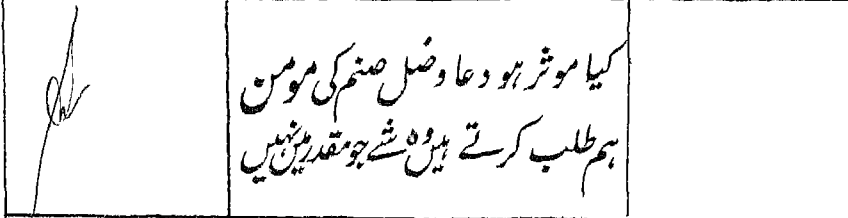 کیا موثر ہو دعا وصل صنم کی مومن
ہم طلب کرتے ہیں وہ شے جو مقدر میں نہیں